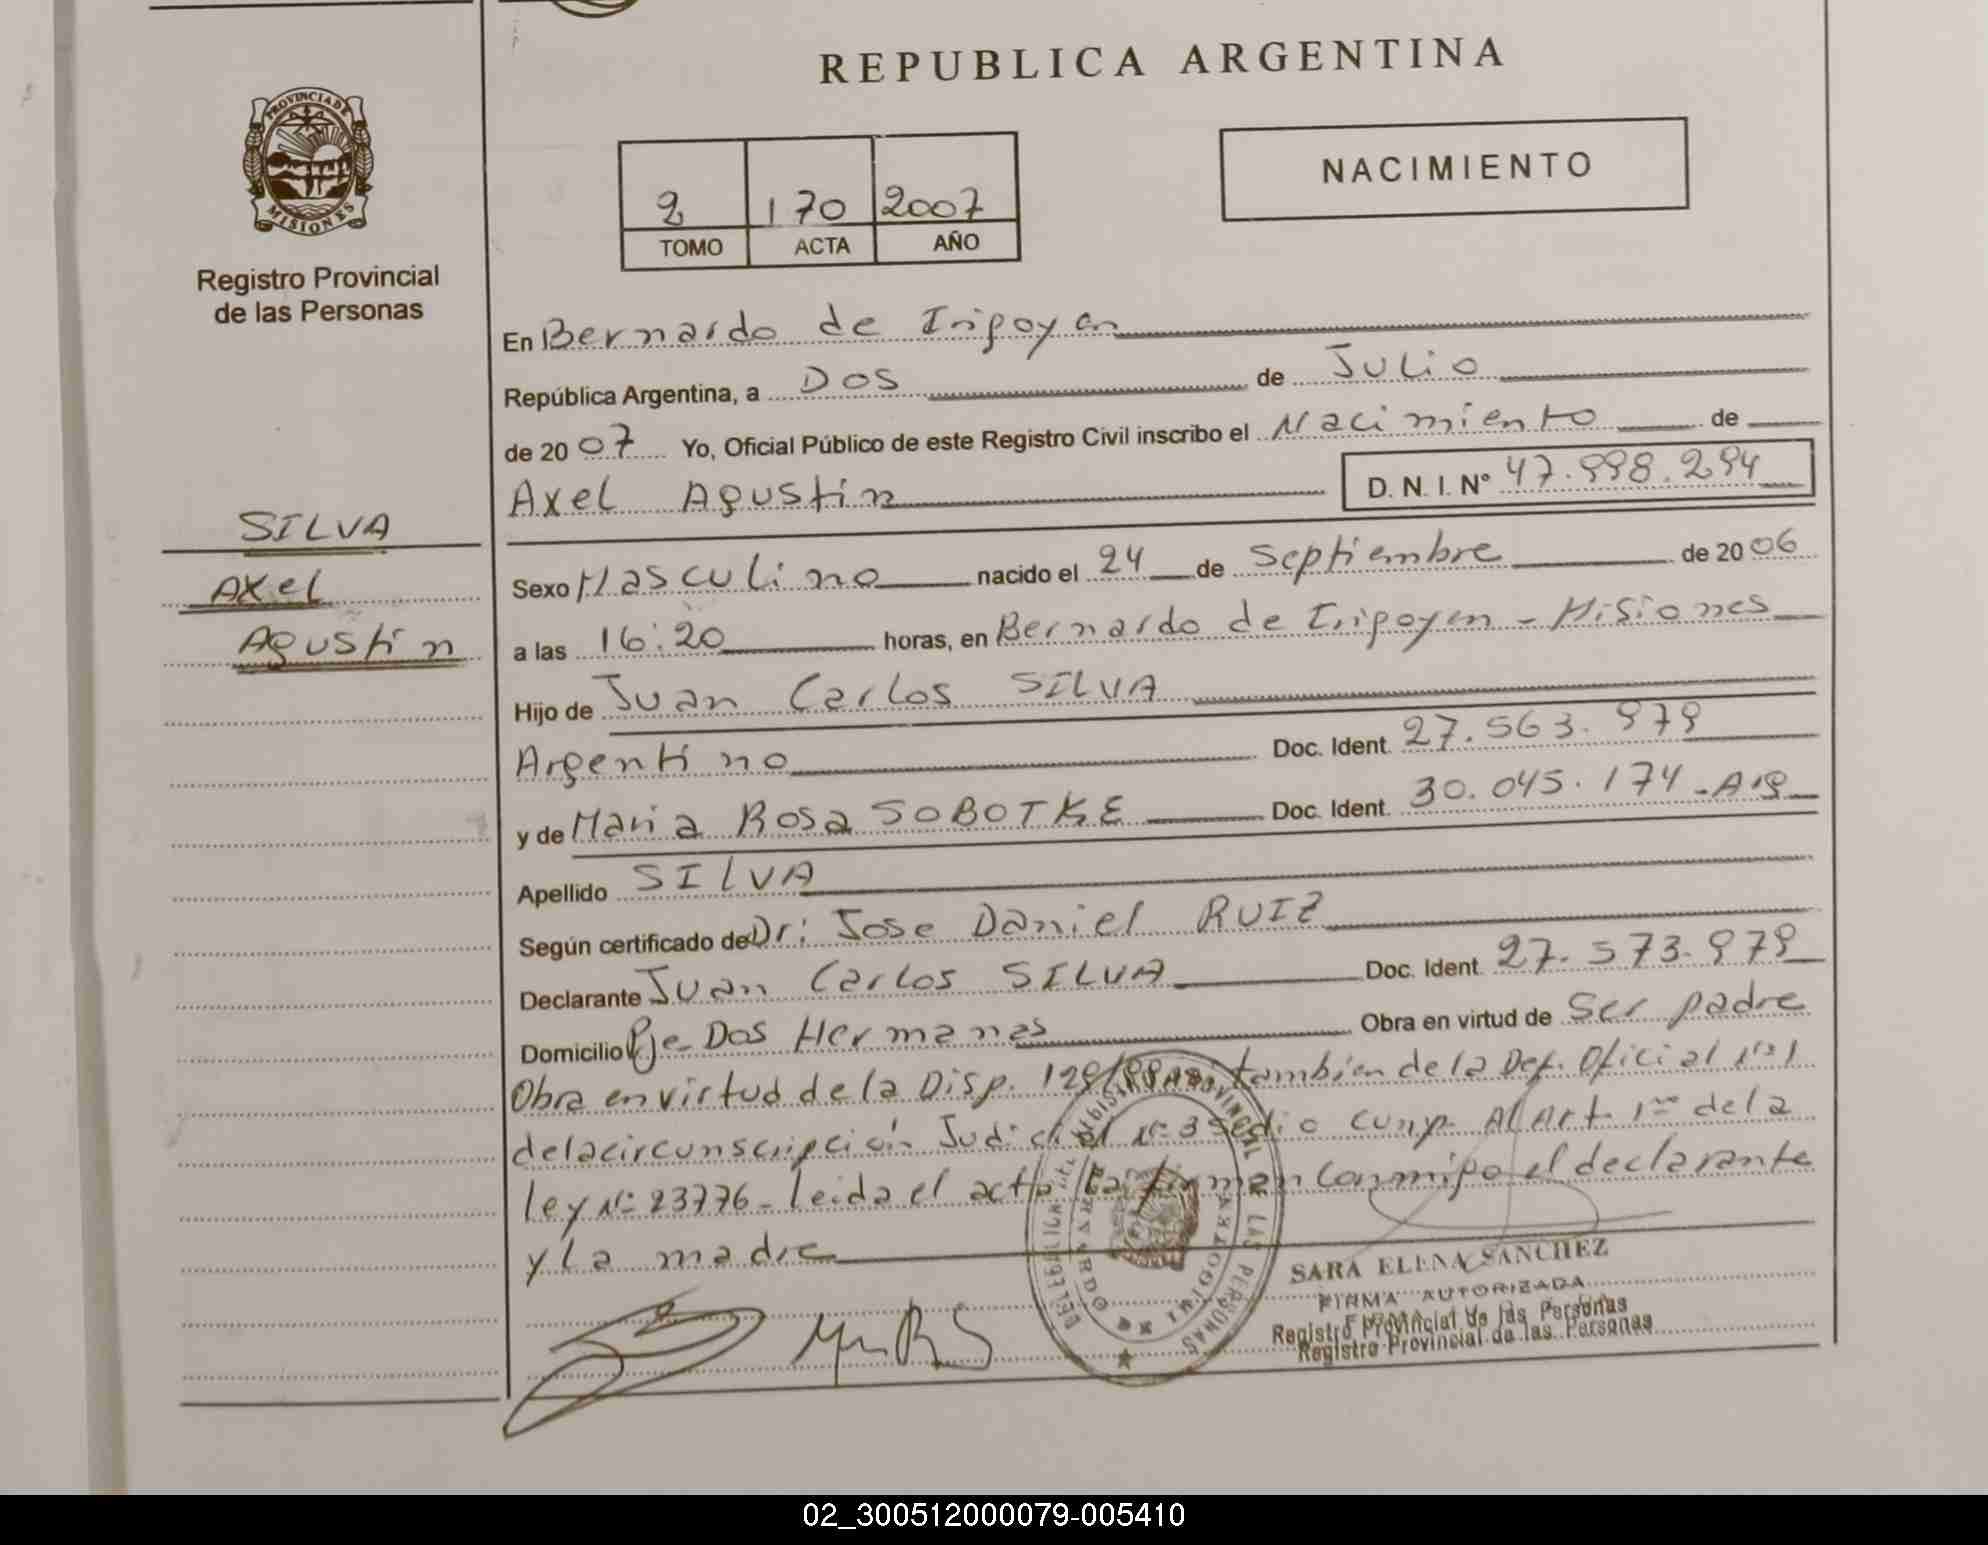 REPUBLICA ARGENTINA
PROVINCIA DE
MISIONES
Registro Provincial
de las Personas
NACIMIENTO
2 170 2007
TOMO ACTA AÑO
En Bernardo de Irigoyen
República Argentina, a Dos de Julio
de 2007 Yo, Oficial Público de este Registro Civil inscribo el Nacimiento de
Axel Agustín D. N. I. Nº 47.998.294
SILVA
Axel
Agustín
Sexo Masculino nacido el 24 de Septiembre de 2006
a las 16:20 horas, en Bernardo de Irigoyen - Misiones
Hijo de Juan Carlos SILVA
Argentino Doc. Ident. 27.563.979
y de Maria Rosa SOBOTKE Doc. Ident. 30.045.174 - Arg
Apellido SILVA
Según certificado de Dr: Jose Daniel RUIZ
Declarante Juan Carlos SILVA Doc. Ident. 27.573.979
Domicilio Pje Dos Hermanas Obra en virtud de Ser padre
Obra en virtud de la Disp. también de la Def. Oficial Nº 1
de la circunscripción Judicial Nº 3 cump. Al Art. 1ro de la
ley Nº 23776 - leída el acta la firman conmigo el declarante
y la madre
DELEGACION REGISTRO PROVINCIAL DE LAS PERSONAS
BERNARDO DE IRIGOYEN
SARA ELENA SANCHEZ
FIRMA AUTORIZADA
Registro Provincial de las Personas
Registro Provincial de las Personas
02_300512000079-005410